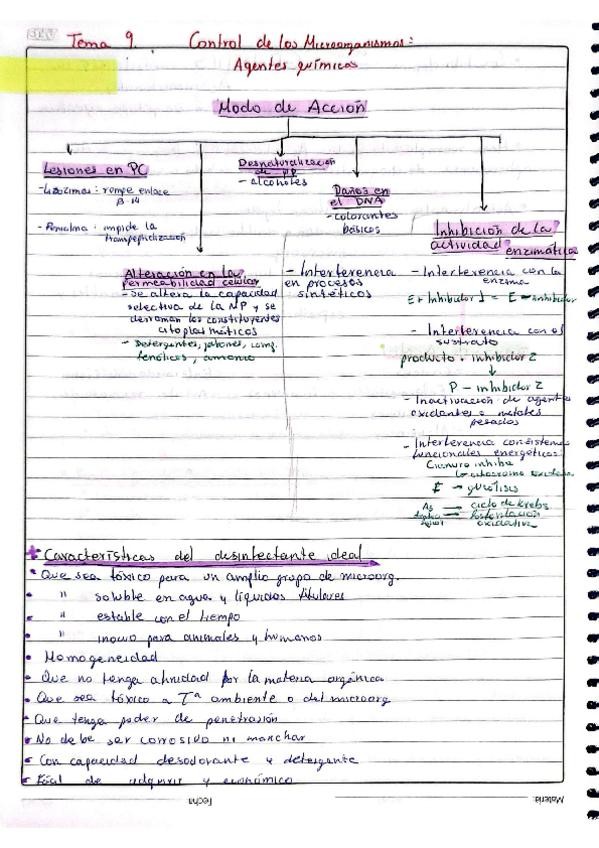 Tema 9. Control de los Microorganismos:
Agentes químicos
Modo de Acción
Lesiones en PC
- Lisozimas: rompe enlace
β-14
- Penicilina: impide la
transpeptidización
Alteración en la
permeabilidad celular
- Se altera la capacidad
selectiva de la MP y se
derraman los constituyentes
citoplasmáticos
- Detergentes, jabones, comp.
fenólicos, amonio
Desnaturalización
de PP
- alcoholes
Daños en
el DNA
- colorantes
básicos
- Interferencia
en procesos
sintéticos
Inhibición de la
actividad enzimática
- Interferencia con la
enzima
E + Inhibidor 1 = E - inhibidor
- Interferencia con el
sustrato
producto + inhibidor 2
↓
P - inhibidor 2
- Inactivación de agent
oxidantes o metales
pesados
- Interferencia con sistema
funcionales energéticos:
Cianuro inhibe
citocromo oxidasa
F → glucólisis
As → ciclo de Krebs
fosforilación
oxidativa
* Características del desinfectante ideal
• Que sea tóxico para un amplio grupo de microorg.
• " soluble en agua y líquidos titulares
• " estable con el tiempo
• " inocuo para animales y humanos
• Homogeneidad
• Que no tenga afinidad por la materia orgánica
• Que sea tóxico a Tª ambiente o del microorg
• Que tenga poder de penetración
• No debe ser corrosivo ni manchar
• Con capacidad desodorante y detergente
• Fácil de adquirir y económico
Fecha
Materia